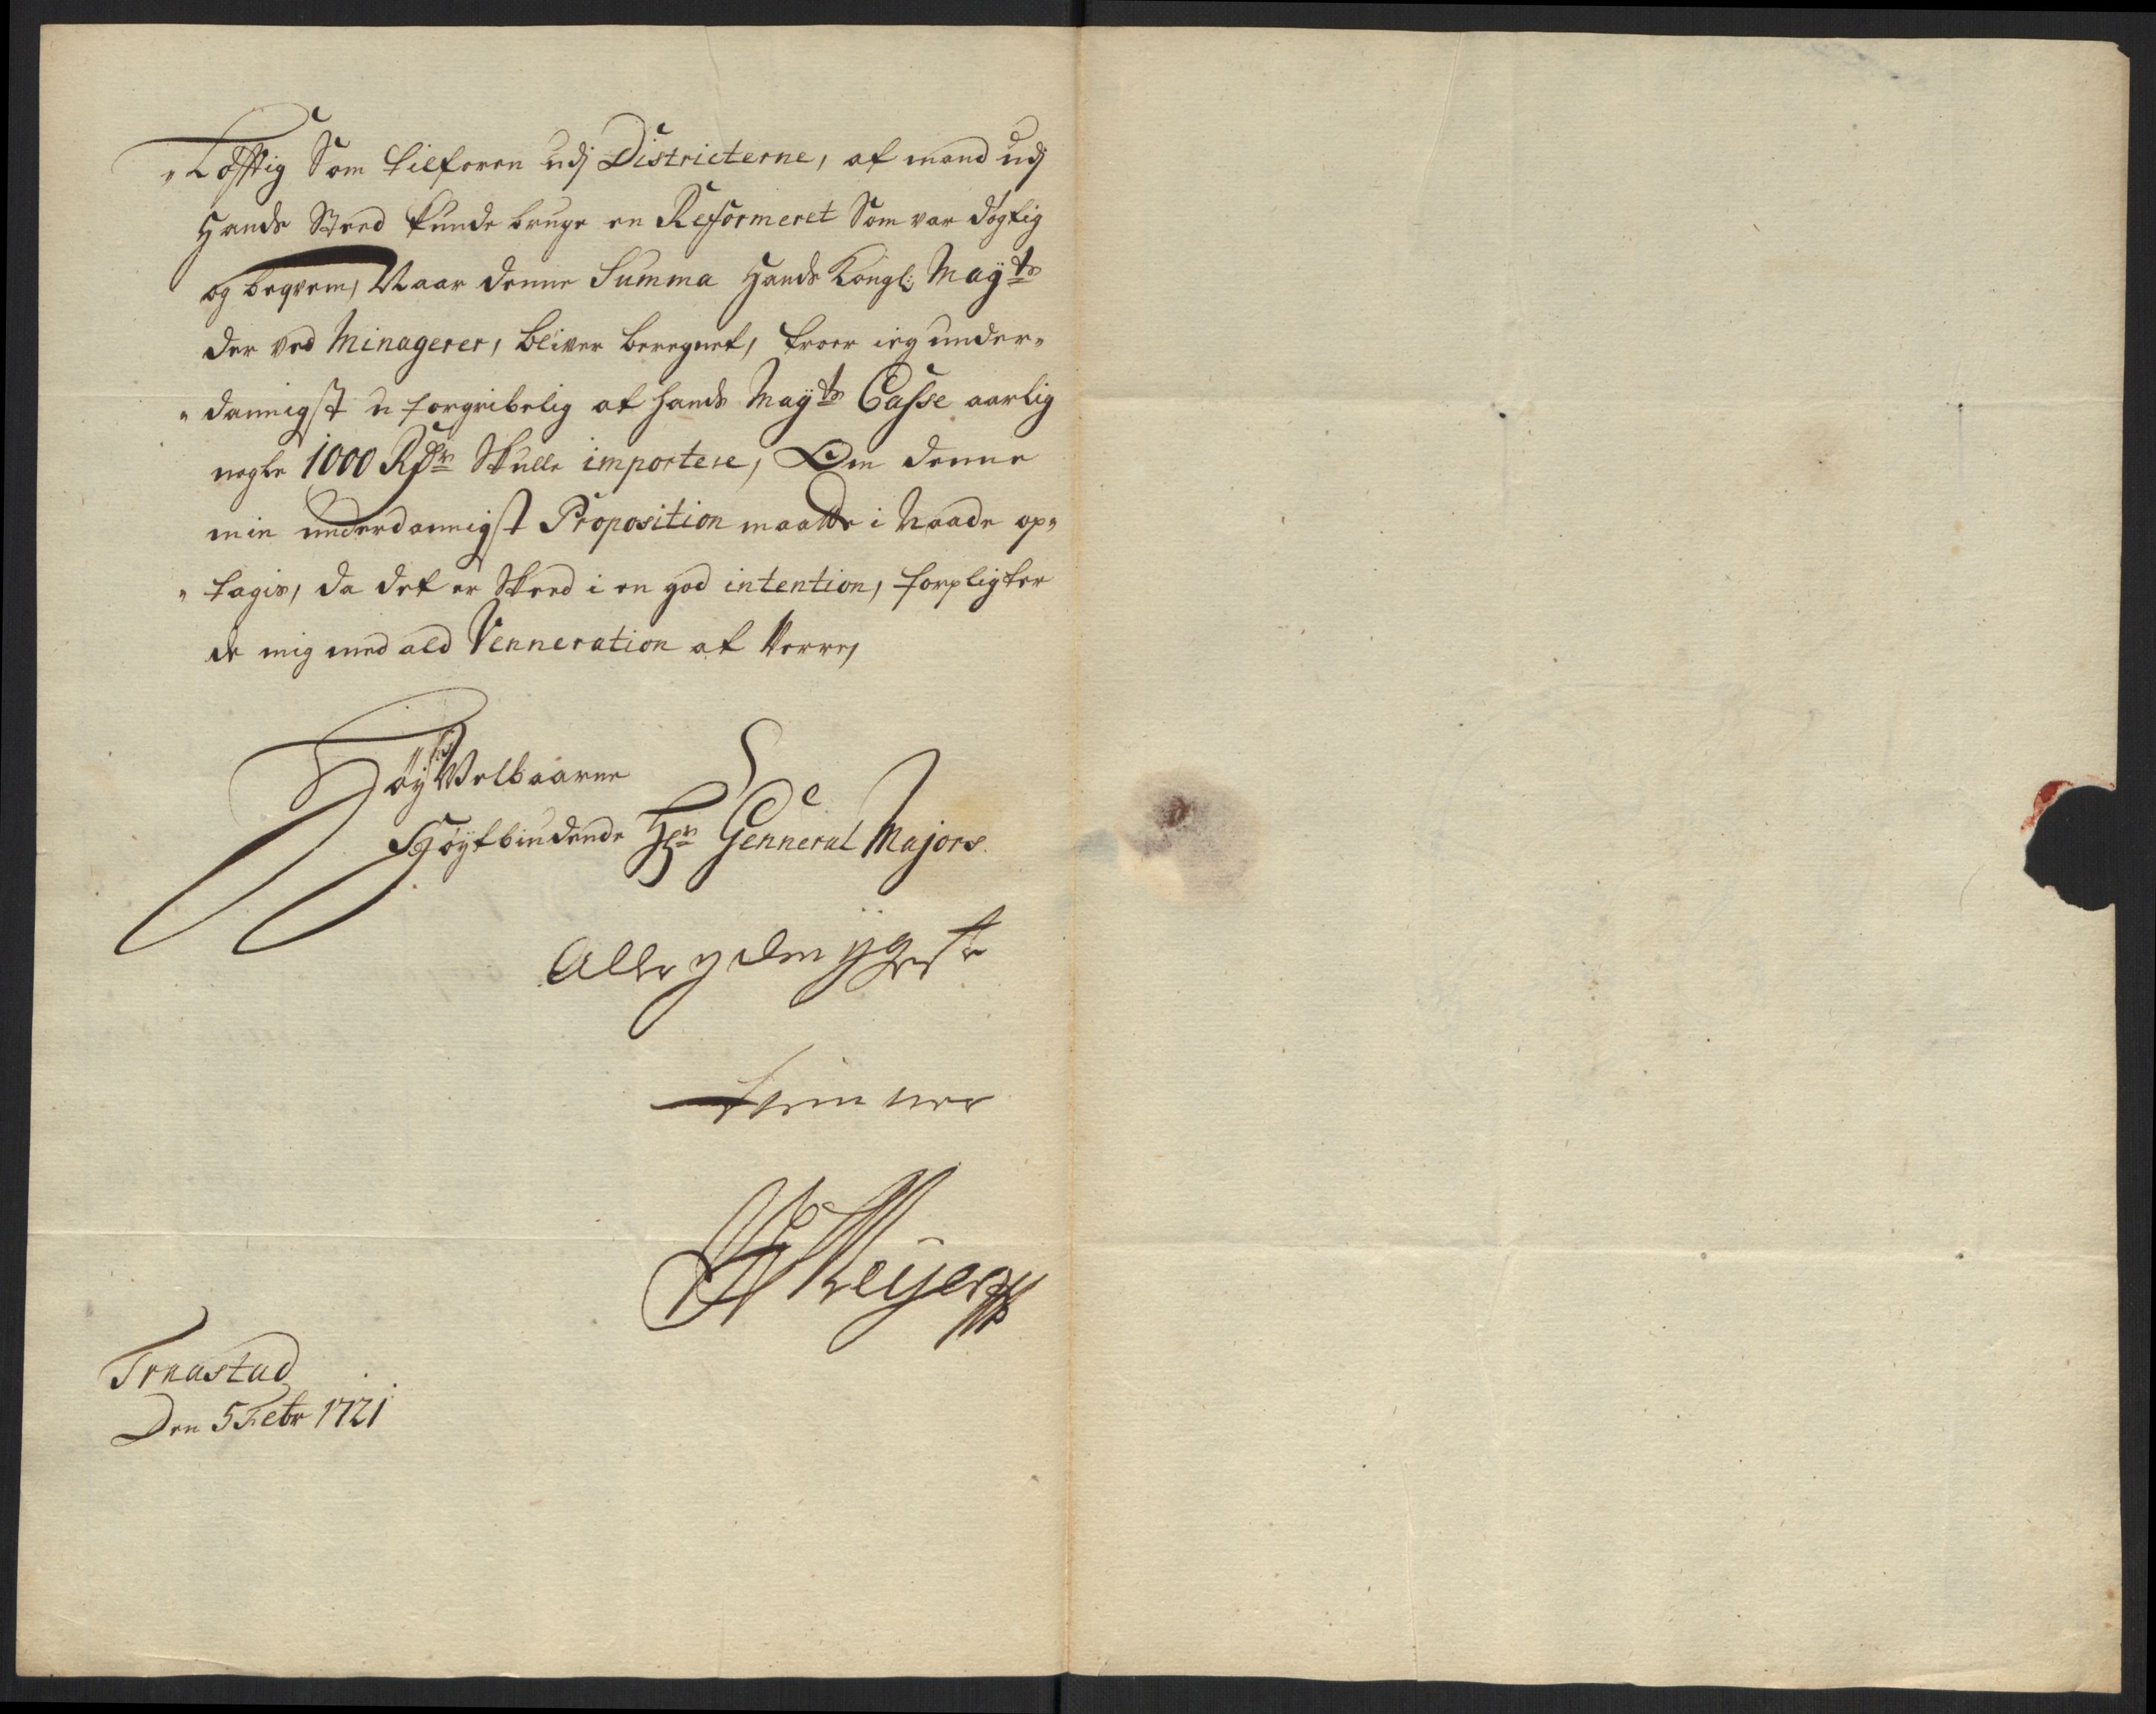 „Løfftig Som tilforen udj Districterne, at mand udj
Hands Steed kunde bruge en Reformeret Som var døgtig
og beqvem, Naar denne Summa Hands Kongl: Maÿts
der ved Minagerer, bliver beregnet, troer ieg under„
„dannigst u forgribelig at hands Maÿts Casse aarlig
nogle 1000 Rdr Skulle importere, Om denne
min underdannigst Proposition maatte i Naade op„
„tagis, da det er Skeed i en god intention, forpligter
de mig med ald Venneration at Verre,
HøyVelbaarne
Høÿtbiudende Hr Genneral Majors
Aller ydmygeste
tienner
Meÿer
Den 5 Febr 1721